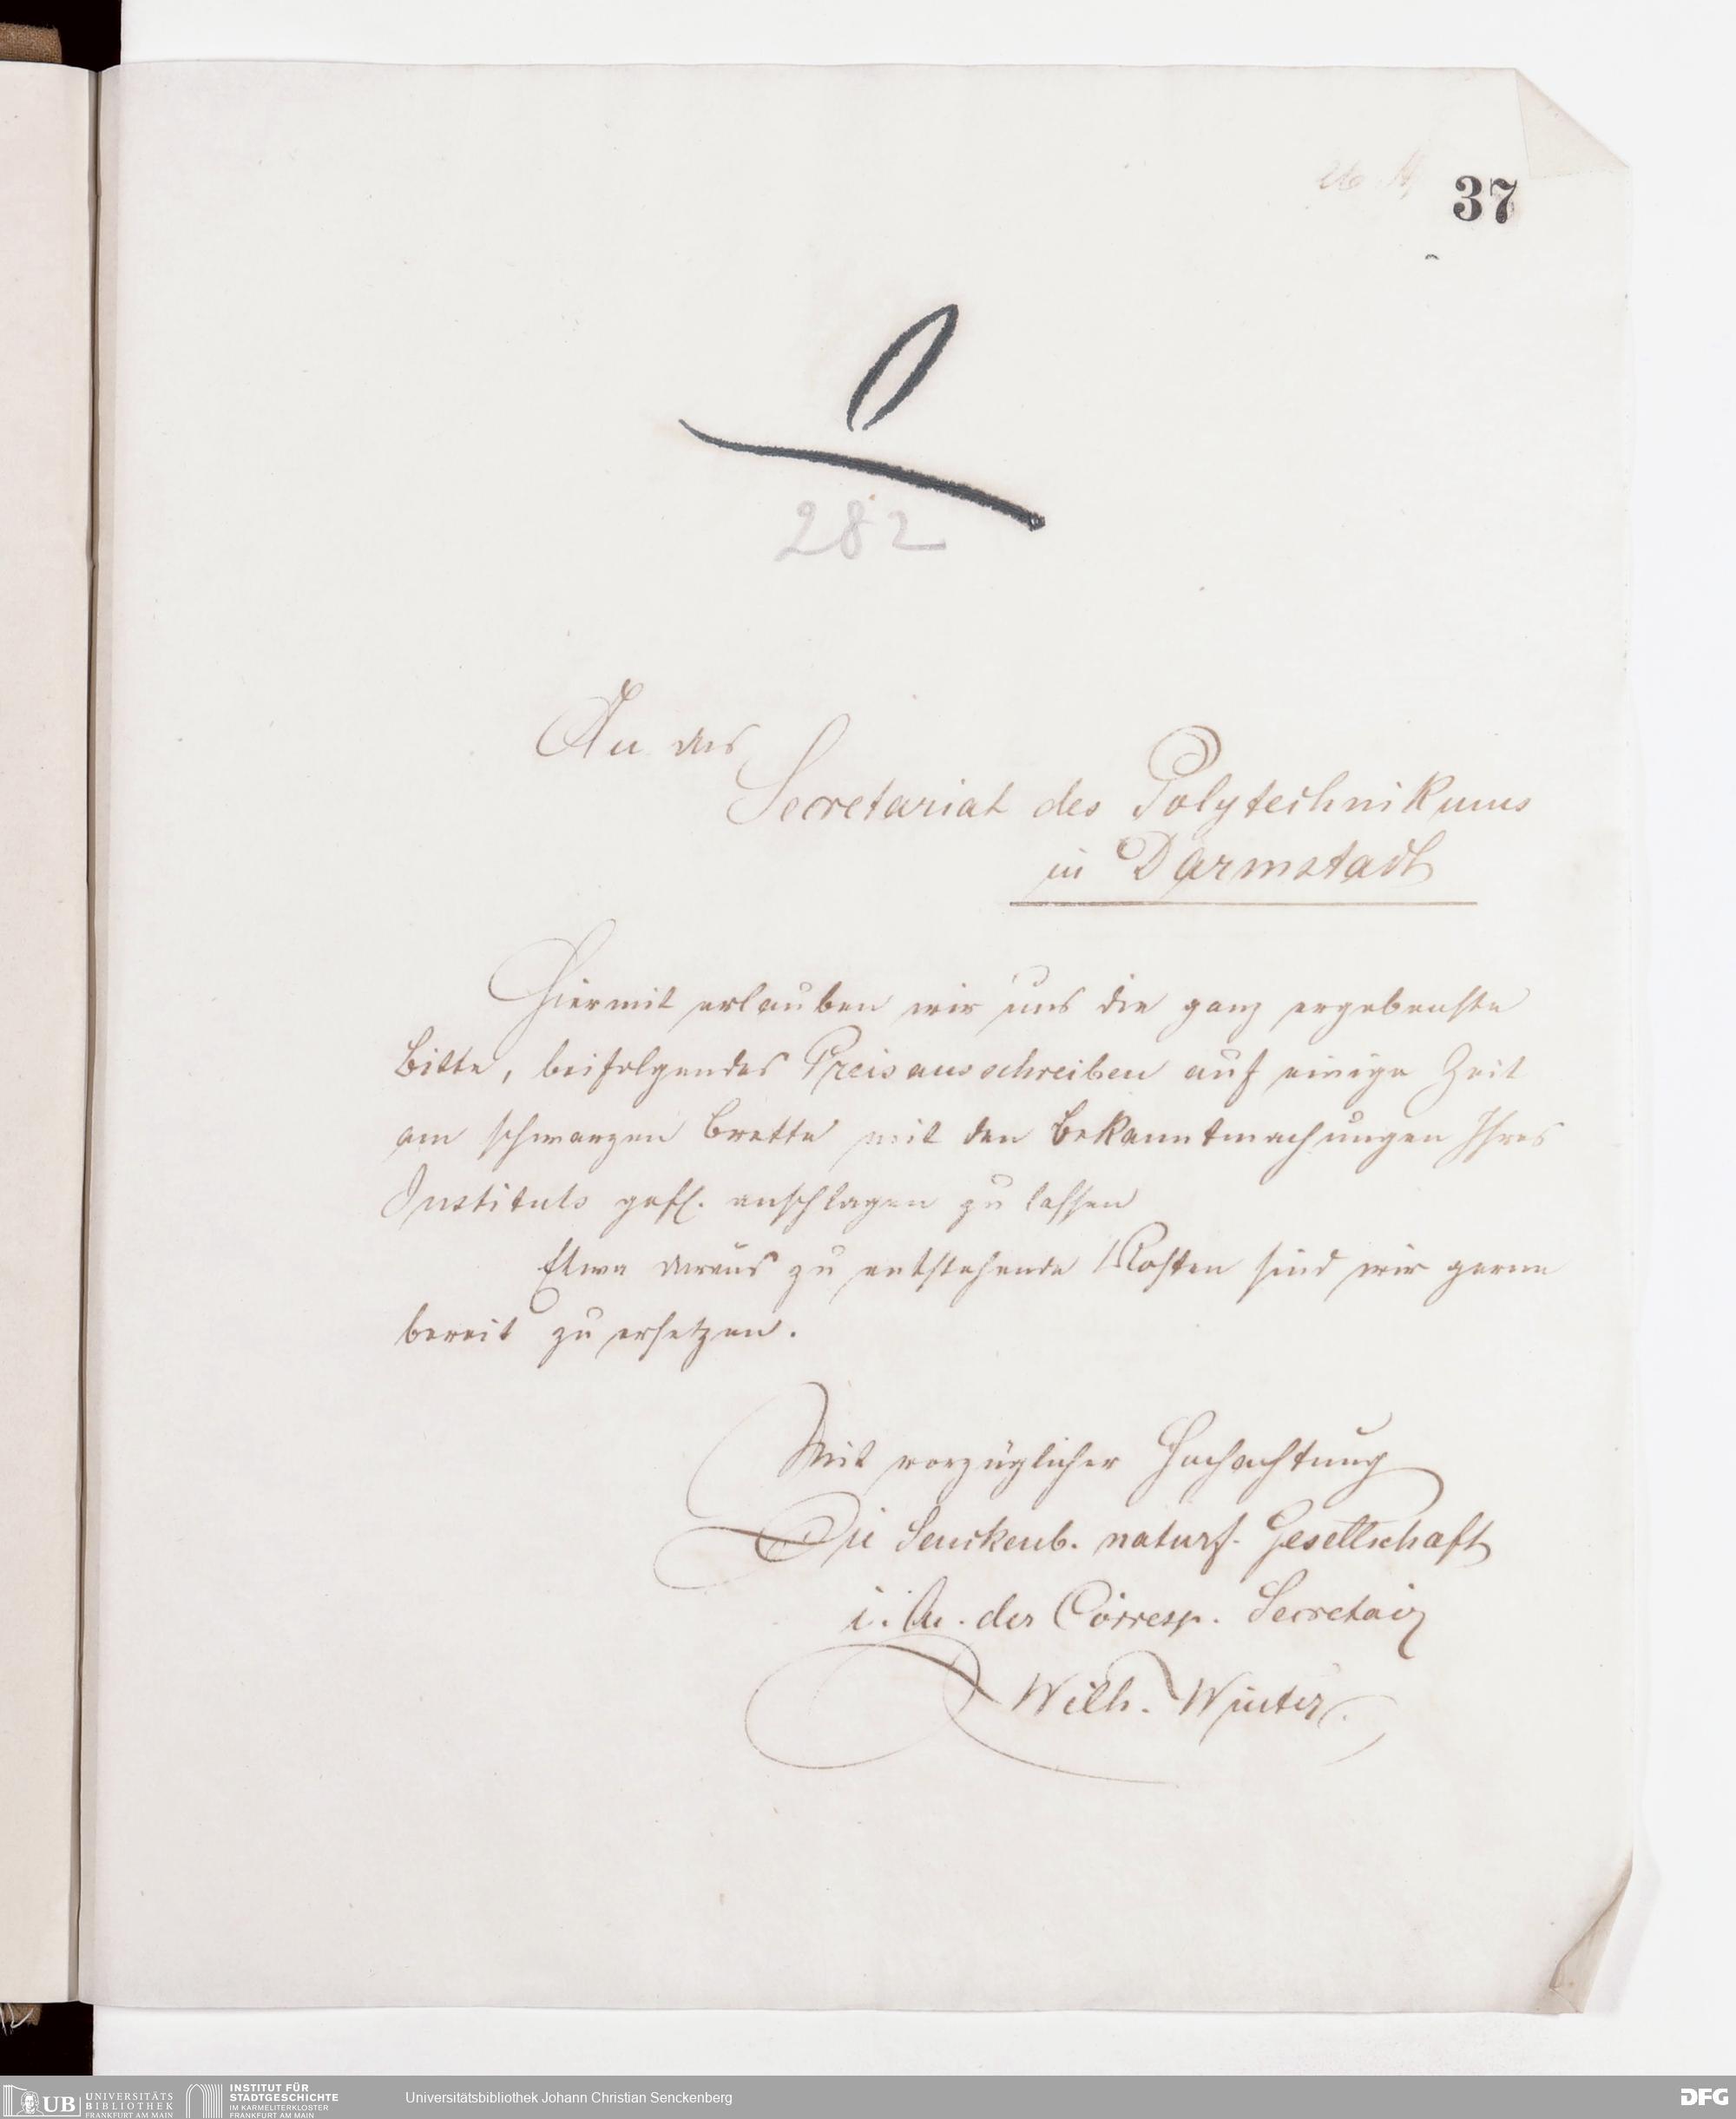 37
282
An das
Secretariat des Polytechnikums
in Darmstadt
Hiermit erlauben wir uns die ganz ergebenste
Bitte, beifolgendes Preisausschreiben auf einige Zeit
am schwarzen Brette mit den Bekanntmachungen Ihres
Instituts gefl. anschlagen zu lassen
Etwa daraus zu entstehende Kosten sind wir gerne
bereit zu ersetzen.
Mit vorzüglicher Hochachtung
Die Senckenb. naturf. Gesellschaft
i. A. der Corresp. Secretair
Wilh. Winter.
UB UNIVERSITÄTS
BIBLIOTHEK
FRANKFURT AM MAIN
INSTITUT FÜR
STADTGESCHICHTE
IM KARMELITERKLOSTER
FRANKFURT AM MAIN
Universitätsbibliothek Johann Christian Senckenberg
DFG